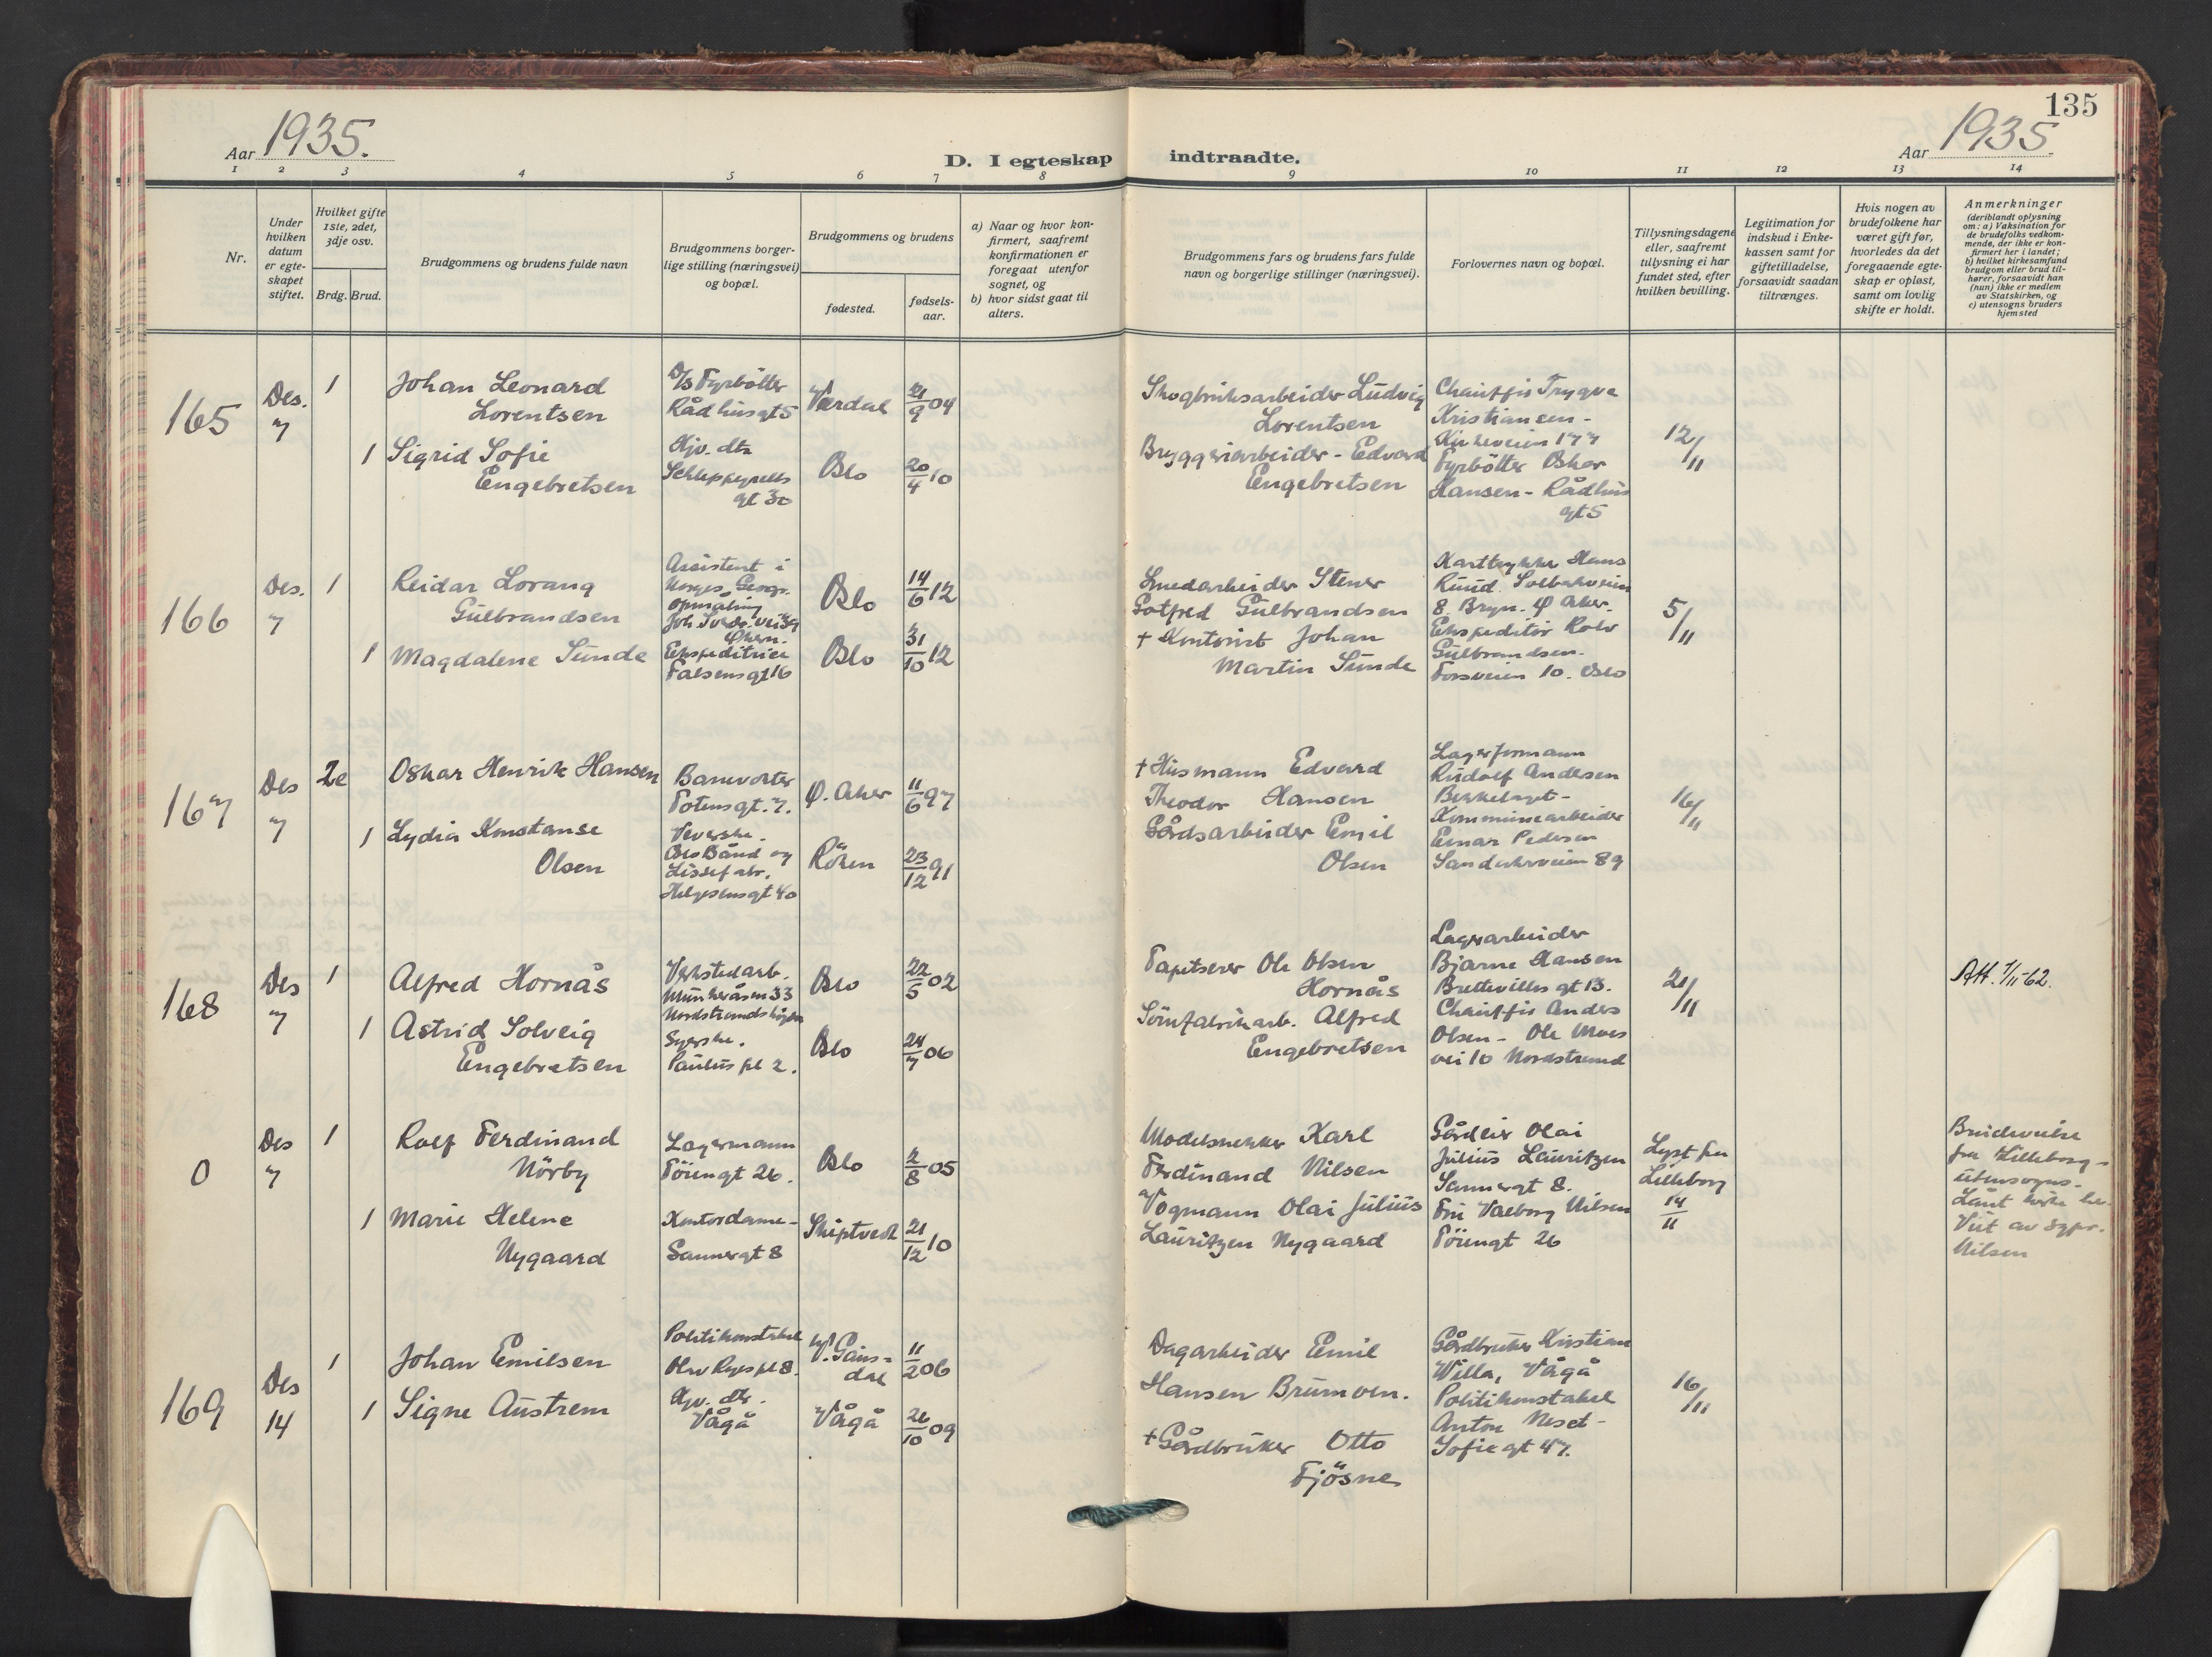 135
Aar 1935.
D. I egteskap indtraadte.
Aar 1935.
1 2 3 4 5 6 7 8 9 10 11 12 13 14
Nr.
Under hvilken datum er egteskapet stiftet.
Hvilket gifte 1ste, 2det, 3dje osv.
Brdg. Brud.
Brudgommens og brudens fulde navn
Brudgommens borgerlige stilling (næringsvei) og bopæl.
Brudgommens og brudens
fødested.
fødselsaar.
a) Naar og hvor konfirmert, saafremt konfirmationen er foregaat utenfor sognet, og
b) hvor sidst gaat til alters.
Brudgommens fars og brudens fars fulde navn og borgerlige stillinger (næringsvei).
Forlovernes navn og bopæl.
Tillysningsdagene eller, saafremt tillysning ei har fundet sted, efter hvilken bevilling.
Legitimation for indskud i Enkekassen samt for giftetilladelse, forsaavidt saadan tiltrænges.
Hvis nogen av brudefolkene har været gift før, hvorledes da det foregaaende egteskap er opløst, samt om lovlig skifte er holdt.
Anmerkninger
(deriblandt oplysning om: a) Vaksination for de brudefolks vedkommende, der ikke er konfirmert her i landet; b) hvilket kirkesamfund brudgom eller brud tilhører, forsaavidt han (hun) ikke er medlem av Statskirken, og c) utensogns bruders hjemsted
165
Des. 7
1
Johan Leonard
Lorentsen
D/S Fyrbøter
Rådhusgt 5
Værdal
21/9 04
Skogbruksarbeider Ludvig
Lorentsen
Chauffør Trygve
Kristiansen -
Kirkeveien 177
12/11
1
Sigrid Sofie
Engebretsen
Hjv. dtr
Schleppegrells
gt 30
Oslo
20/4 10
Bryggeriarbeider - Edvard
Engebretsen
Fyrbøter Oskar
Hansen - Rådhus
gt 5
166
Des. 7
1
Reidar Lorang
Gulbrandsen
Assistent i
Norges Geogr.
Opmåling
Oslo
14/6 12
Smedarbeider Stener
Gotfred Gulbrandsen
Karttrykker Hans
Ruud. Solbakveien
8. Bryn. Ø Aker.
5/11
1
Magdalene Sunde
Ekspeditrice
Falsensgt 16
Oslo
31/10 12
+ Kontorist Johan
Martin Sunde
Ekspeditør Rolv
Gulbrandsen.
Forsveien 10. Oslo
167
Des 7
2e
Oskar Henrik Hansen
Banevokter
Totensgt. 7.
Ø. Aker
11/6 97
+ Husmann Edvard
Theodor Hansen
Lagerformann
Rudolf Andesen
Bekkelaget -
16/11
1
Lydia Konstanse
Olsen
Veverske.
Oslo Bånd og
Lissefabr.
Helgesensgt 40
Röken
23/12 91
Gårdsarbeider Emil
Olsen
Kommunearbeider
Einar Pedersen
Sandakerveien 89
168
Des 7
1
Alfred Hornås
Verkstedarb.
Munkeråsen 33
Nordstrandshögda
Oslo
22/5 02
Tapetserer Ole Olsen
Hornås
Lagerarbeider
Bjarne Hansen
Brettevilles gt 13.
21/11
Att. 7/11-62.
1
Astrid Solveig
Engebretsen
Syerske.
Paulus pl 2.
Oslo
24/7 06
Sömfabrikarb. Alfred
Engebretsen
Chauffør Anders
Olsen - Ole Moes
vei 10 Nordstrand
0
Des 7
1
Rolf Ferdinand
Nörby
Lagermann
Töiengt 26.
Oslo
2/8 05
Modelsnekker Karl
Ferdinand Nilsen
Gårdeier Olai
Julius Lauritzen
Sannergt 8.
Lyst fra
Lilleborg
14/11
Brudevielse
fra Lilleborg -
utensogns.
Lånt kirke be.
Viet av sgpr.
Nilsen
1
Marie Helene
Nygaard
Kontordame -
Sannergt 8
Skiptvedt
21/12 10
Vognmann Olai Julius
Lauritzen Nygaard
Fru Valborg Nilsen
Töiengt 26
169
Des 14
1
Johan Emilsen
Politikonstabel
Olav Ryes pl 8.
V. Gausdal
11/2 06
Dagarbeider Emil
Hansen Brumoen.
Gårdbruker Kristian
Willa, Vågå
16/11
1
Signe Austrem
Hjv. dtr.
Vågå
Vågå
26/10 09
+ Gårdbruker Otto
Fjösne
Politikonstabel
Anton Neset -
Sofie gt 47.